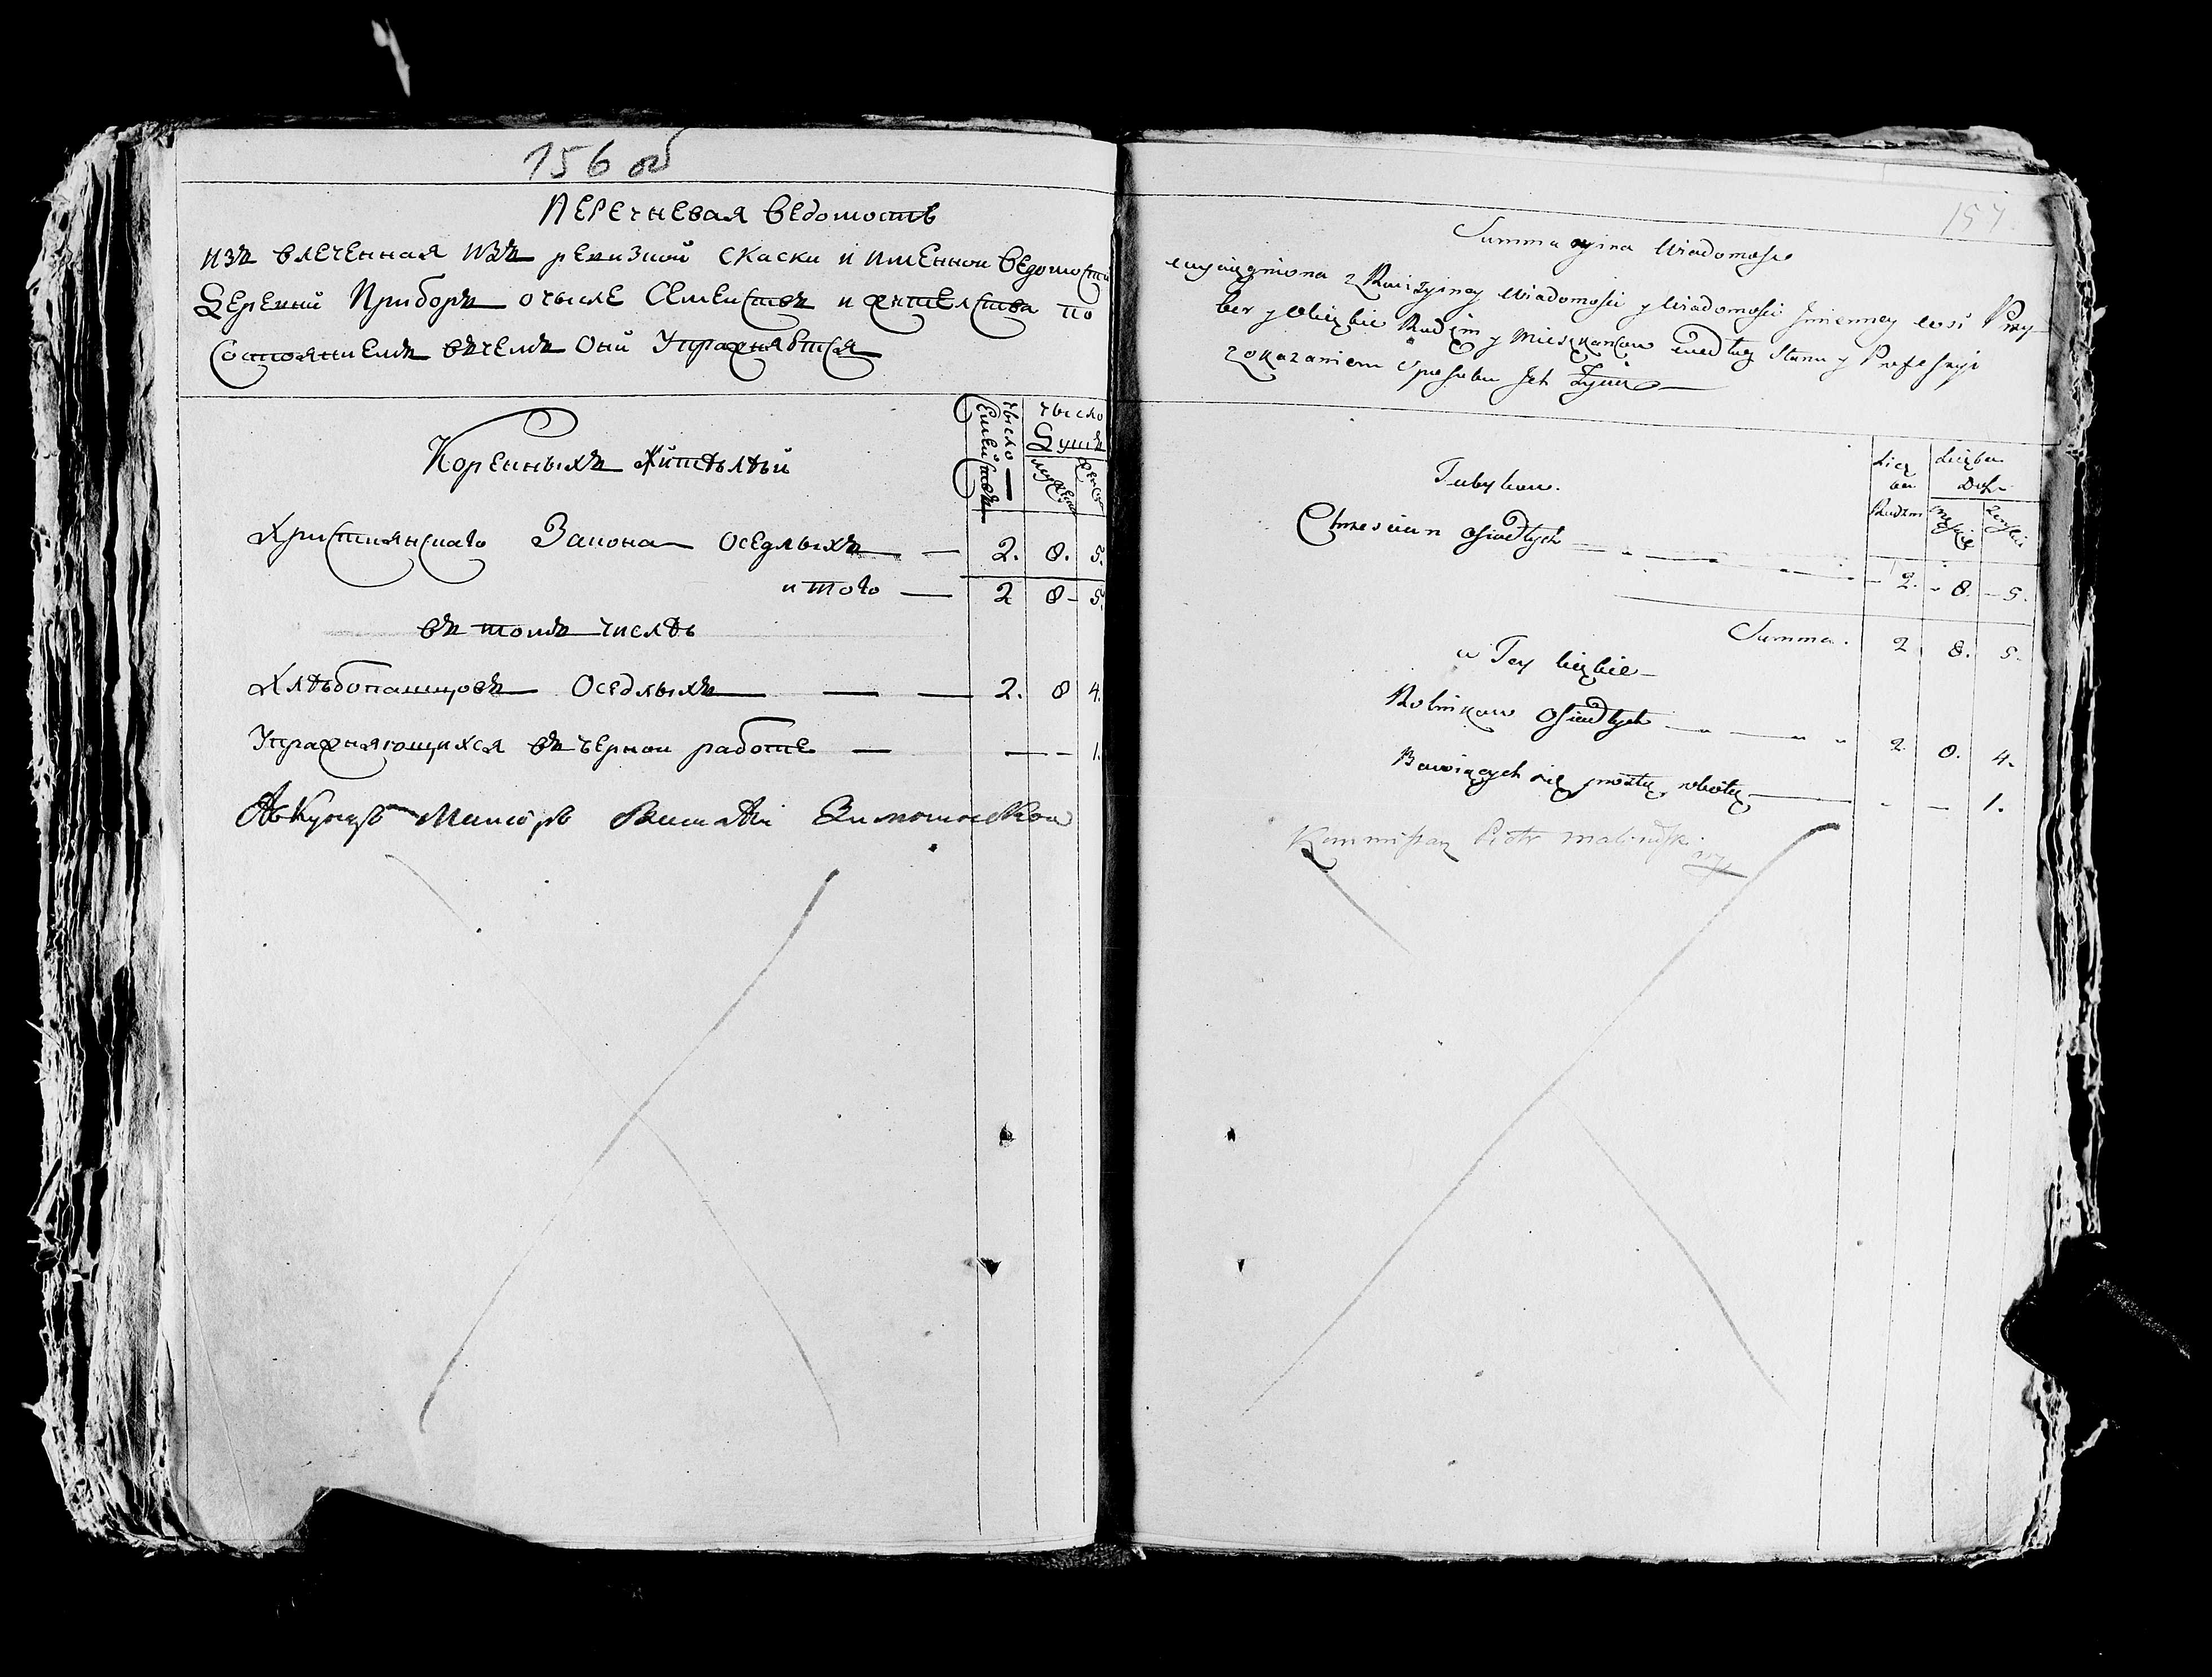 156 об
Перечневая ведомость
изъ влеченная изъ ревизкой скаски и именной ведомости
деревни Приборъ о числе семействъ и жителства по
состояниемъ въ чемъ они упражняются
Коренныхъ жителей
число семействъ
число душъ
муж женс
Християнскаго Закона оседлыхъ — 2. 8. 5.
итого — 2 8 - 5.
въ томъ числѣ
Хлѣбопашцовъ Оседлыхъ — — — 2. 8 4.
Упражняющихся въ черной работе — — - 1.
157
Summaryina Wiadomość
wyciągniona z Rewizyiney Wiadomości y Wiadomości Jmienney wsi Przy-
bor y o liczbie Rodzin y Mieszkancow według Stanu y Professyi
z okazaniem sposobu Jch Życia —
Tubylcow.
Liczba Rodzin
Liczba Dusz
męskie żenskie
Chrzescian osiadłych - 2. - 8. - 5.
Summa. 2. 8. 5.
w Tey liczbie —
Rolnikow osiadłych 2. 8. 4.
Bawiących się prostą robotą — - — 1.
Kommissarz Piotr Malinowski